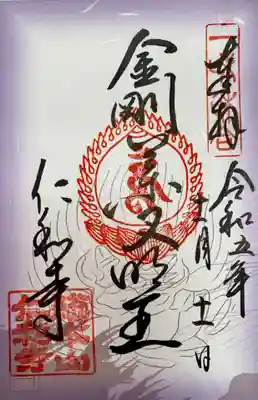 奉拝
令和五年
十一月十一日
金剛薬叉明王
仁和寺